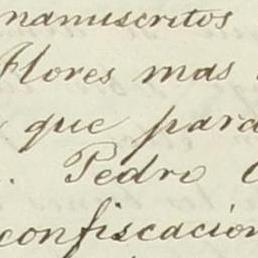 manuscritos
Flores mas
que para
. Pedro
confiscacion